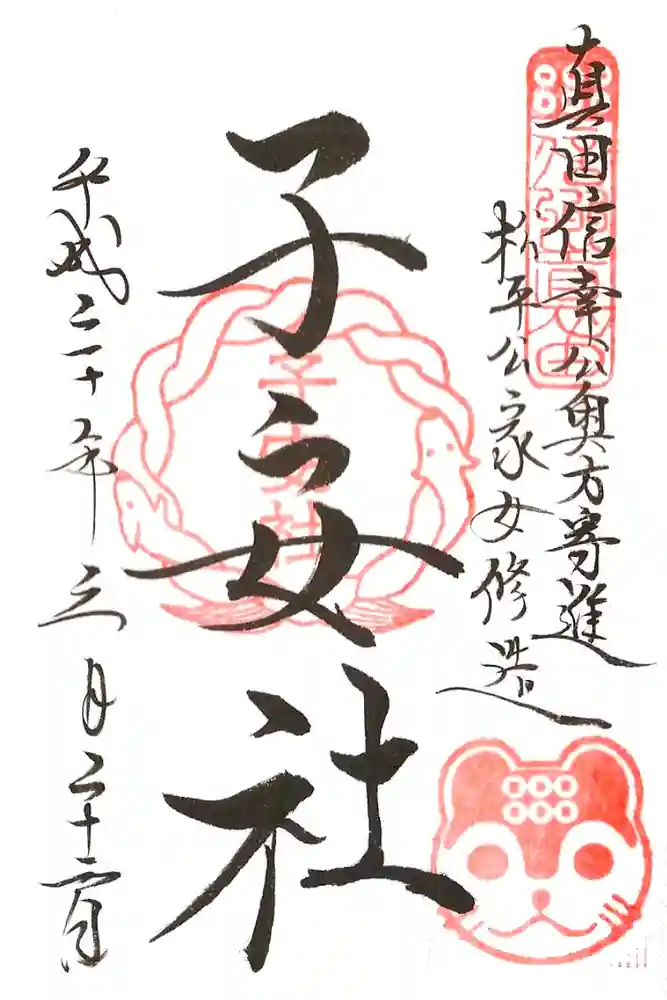 真田信幸公奥方寄進
松平公家女修造
子安社
子安社
平成二十年三月二十日